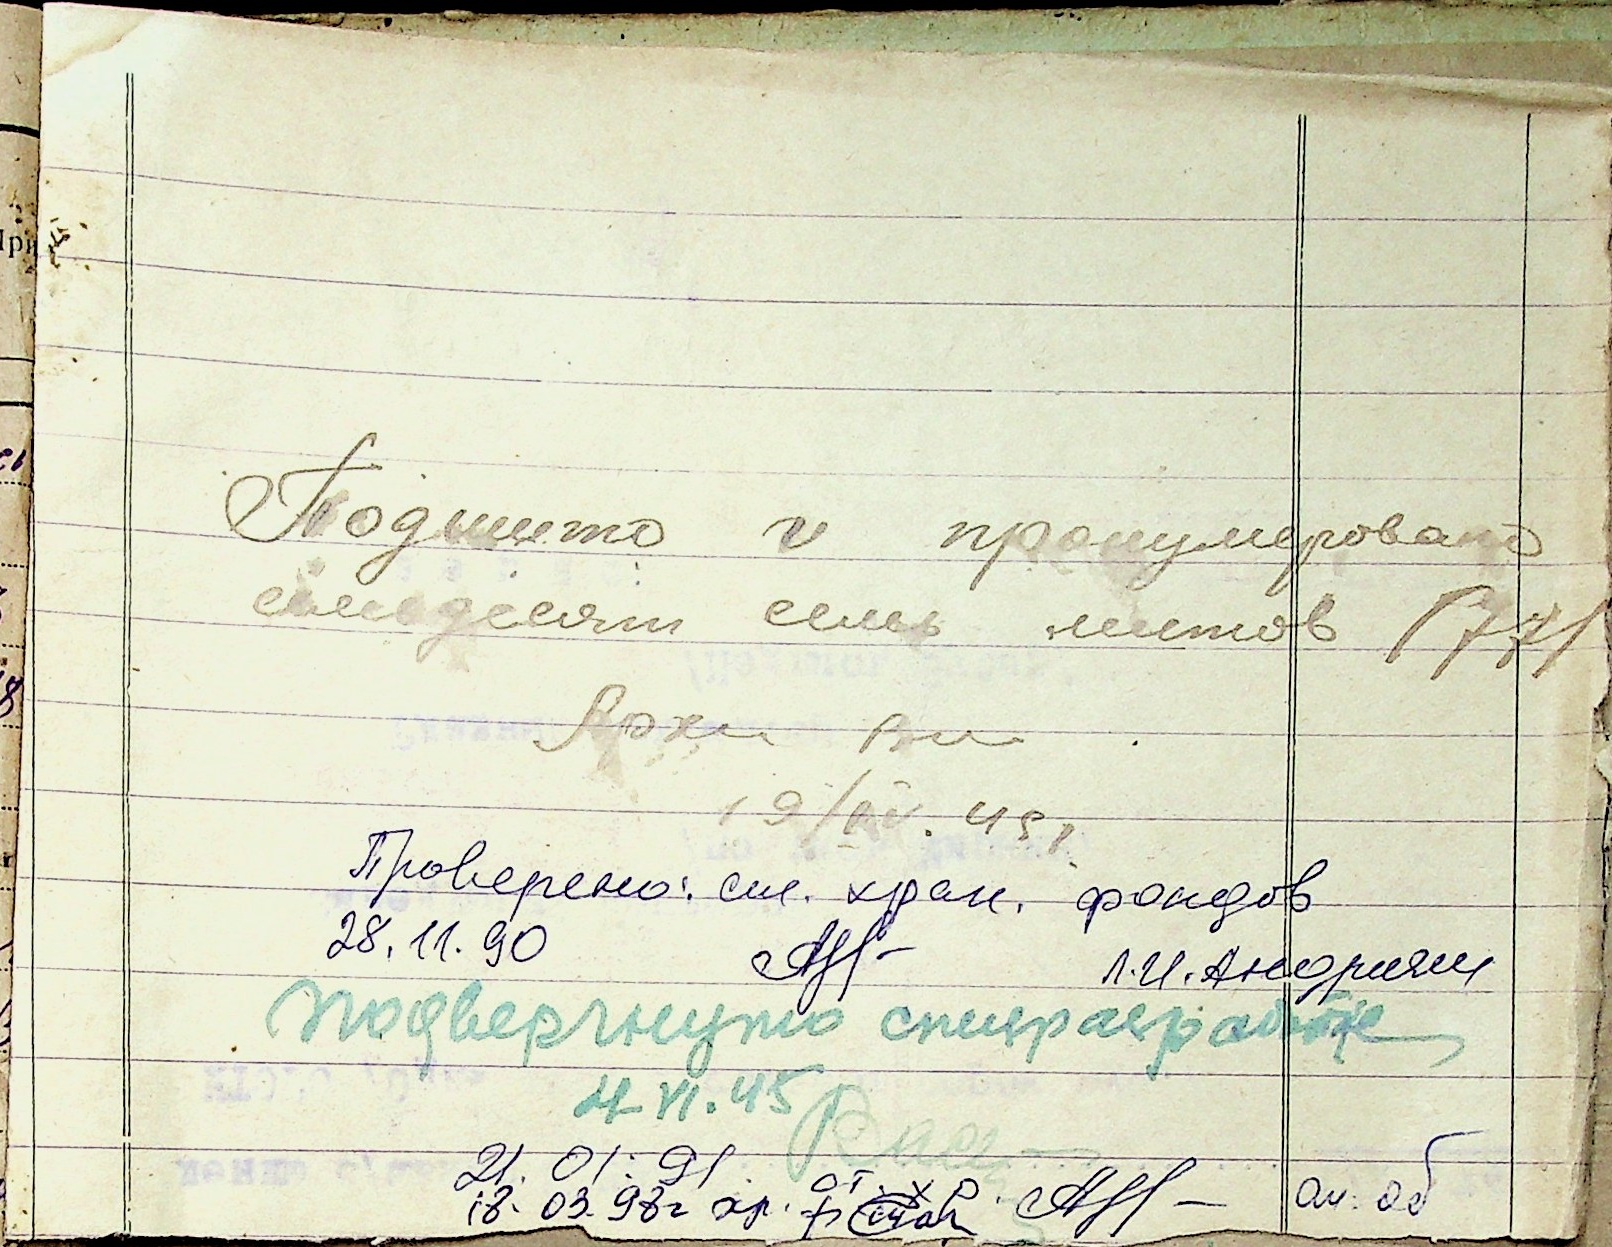 Подшито и пронумеровано
семьдесят семь листов /77/
19/IV. 45г.
Проверено: ст. хран. фондов
28.11.90 Л.И. Андрияш
подвергнуто спецразработке
4 VI. 45
21. 01. 91
18. 03. 98г хр.